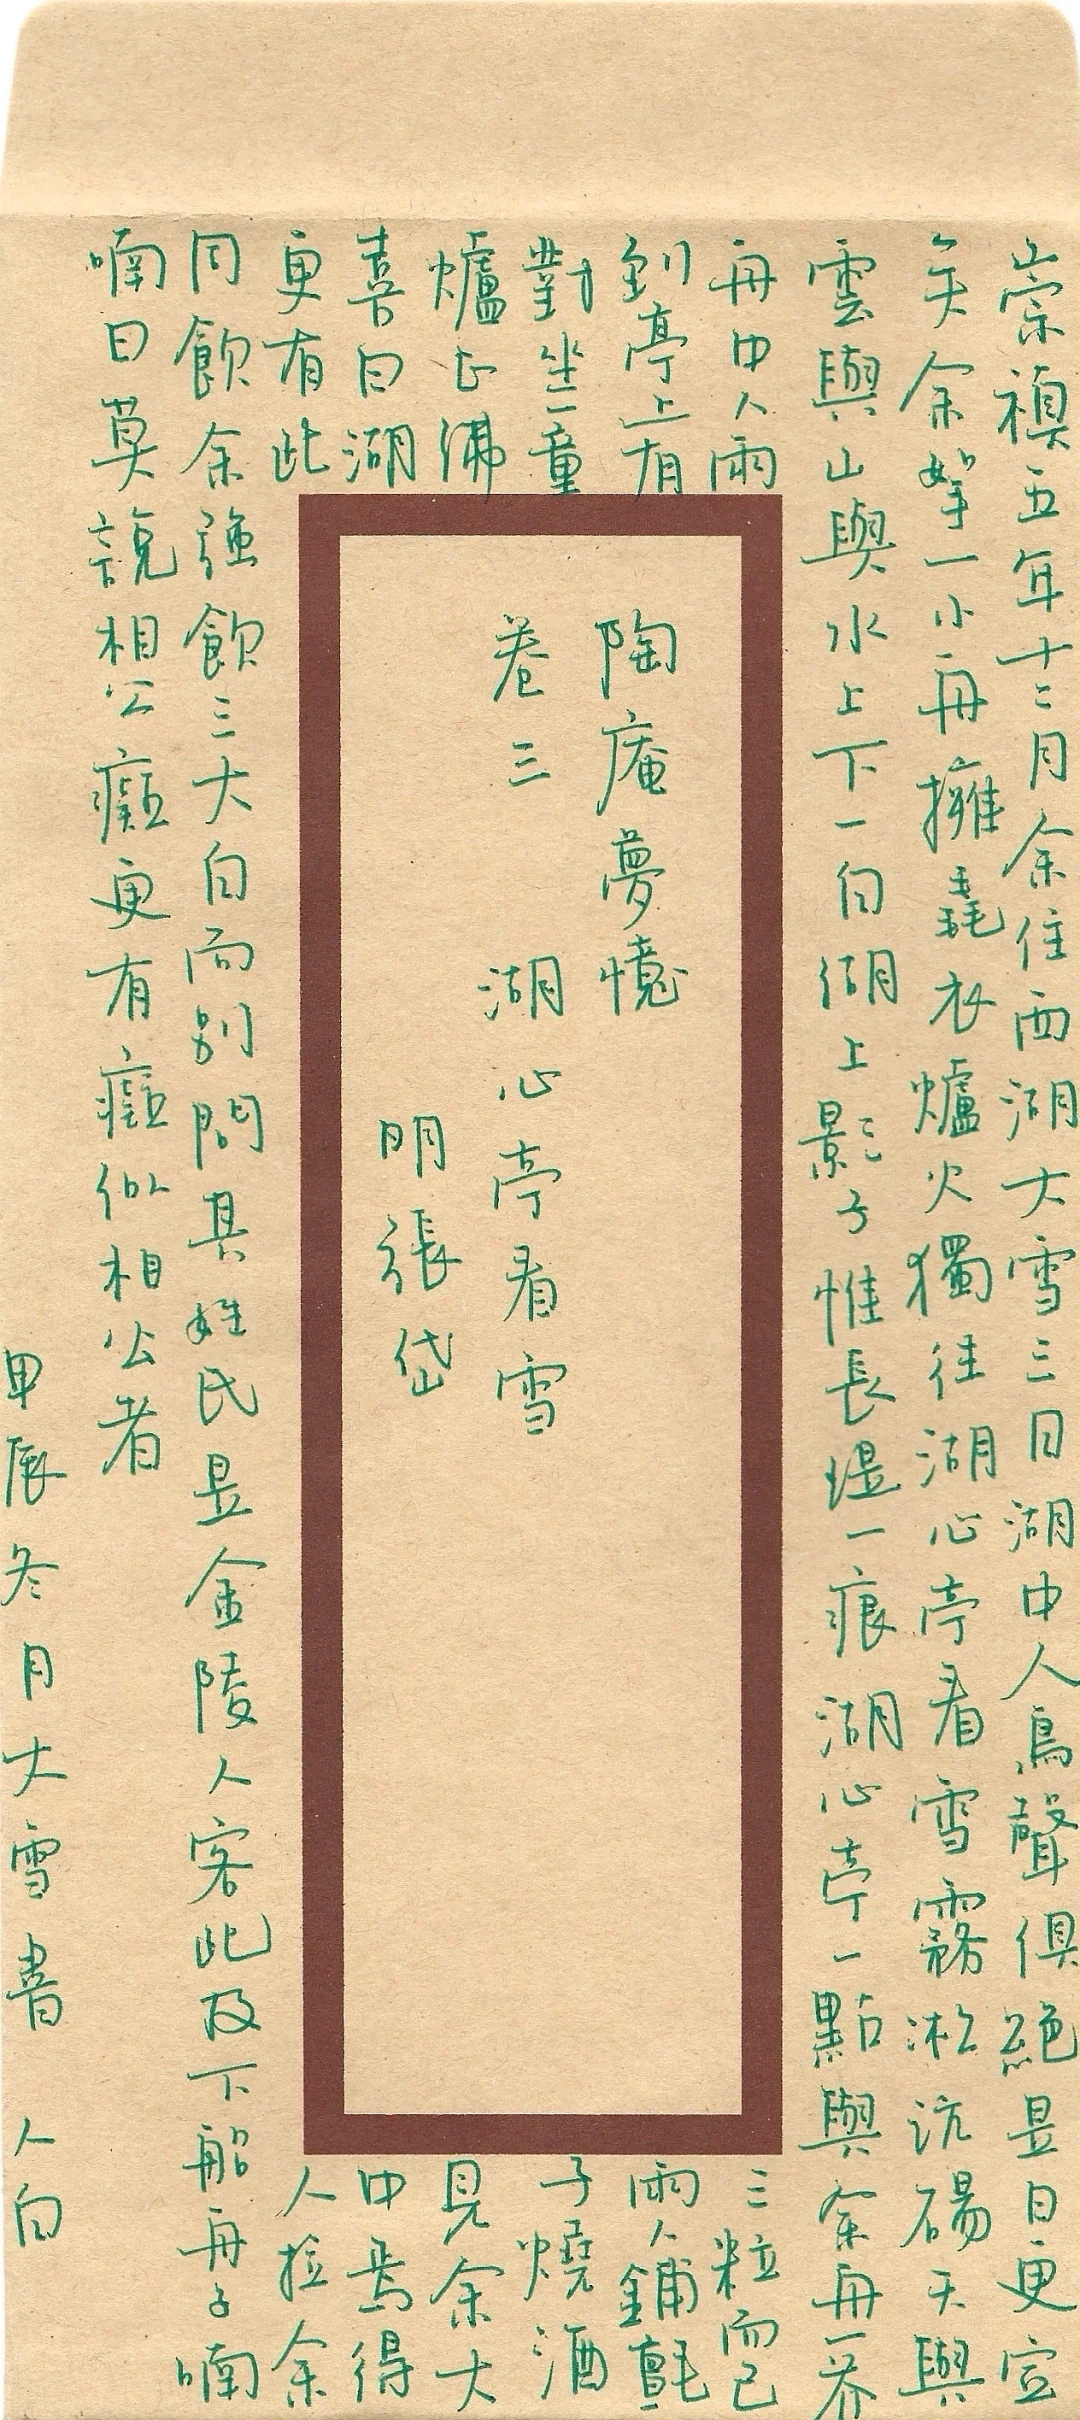 崇禎五年十二月余住西湖大雪三日湖中人鳥聲俱絕是日更定
矣余挐一小舟擁毳衣爐火獨往湖心亭看雪霧淞沆碭天與
雲與山與水上下一白湖上影子惟長堤一痕湖心亭一點與余舟一芥
舟中人兩
三粒而已
到亭上有
兩人鋪氈
對坐一童
子燒酒
爐正沸
見余大
喜曰湖
中焉得
更有此
人拉余
同飲余強飲三大白而別問其姓氏是金陵人客此及下船舟子喃
喃曰莫說相公癡更有癡似相公者
甲辰冬月大雪書 人白
陶庵夢憶
卷三 湖心亭看雪
明張岱